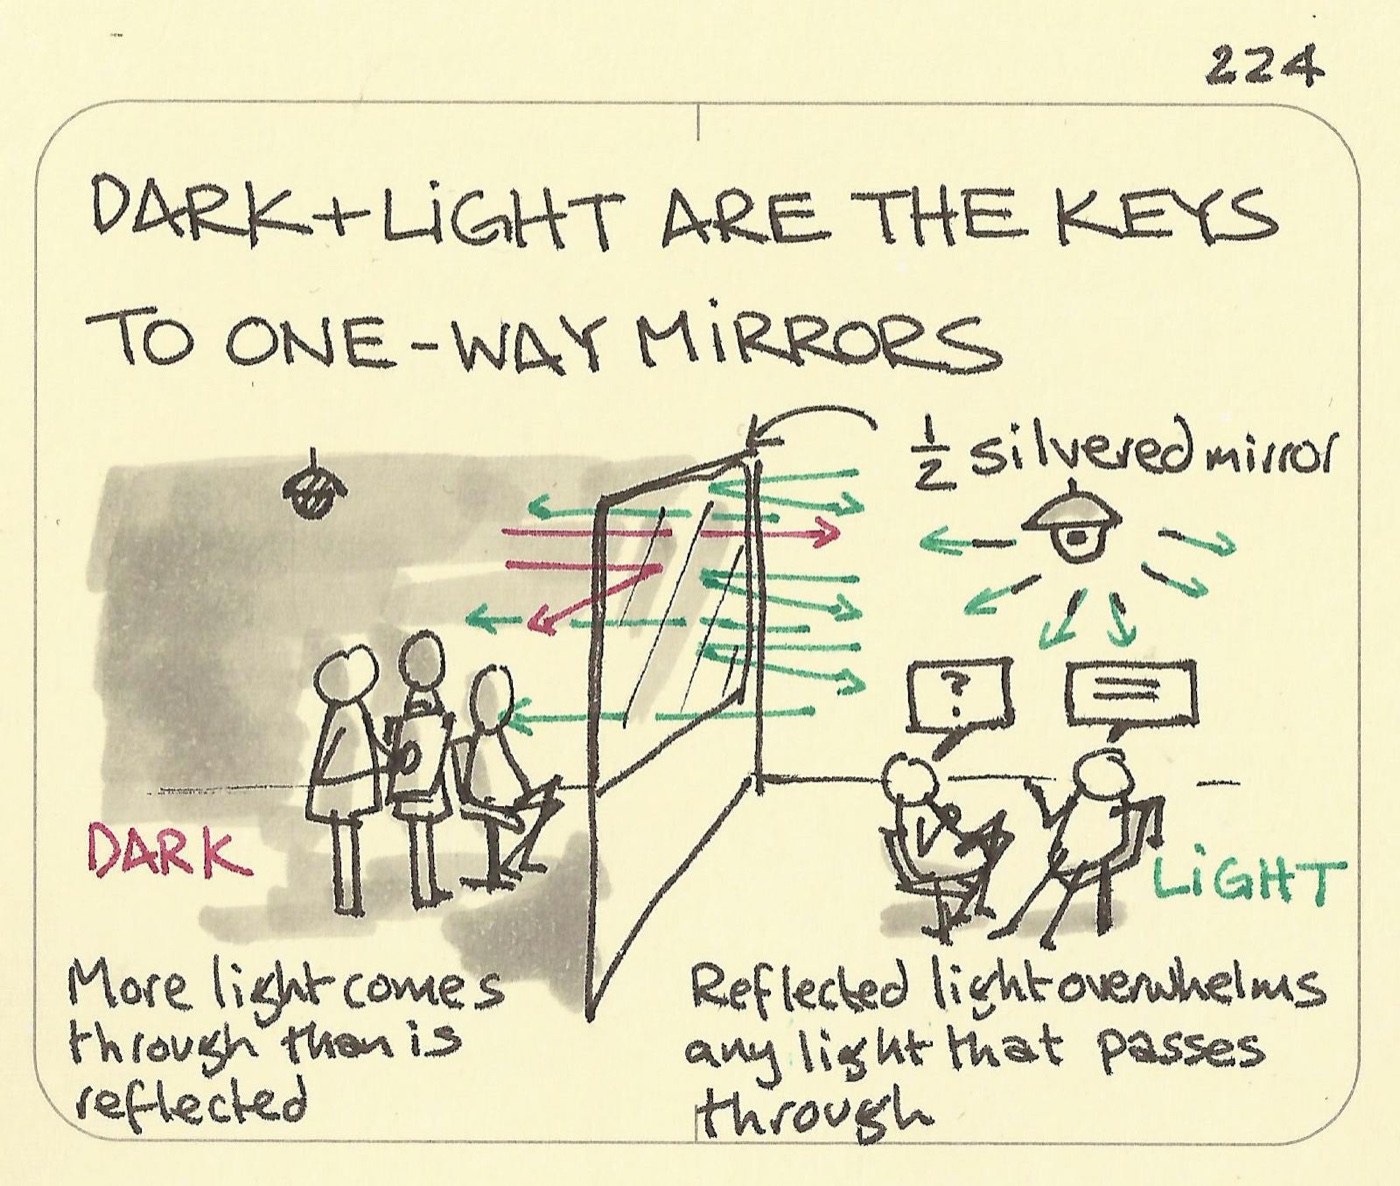 224
DARK+LiGHT ARE THE KEYS
TO ONE-WAY MiRRORS
1/2 silvered mirror
?
DARK
LiGHT
More light comes
through than is
reflected
Reflected light overwhelms
any light that passes
through